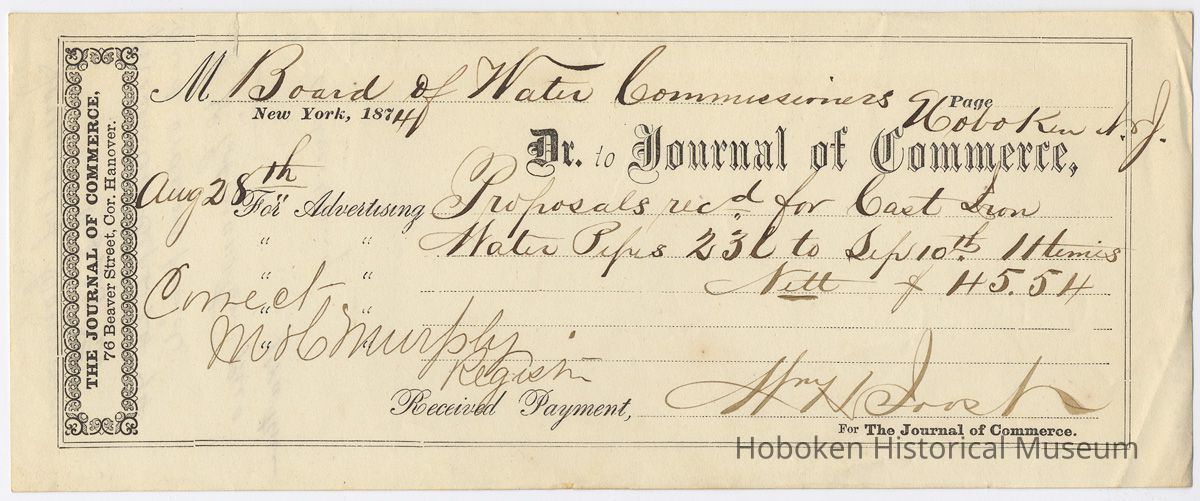 THE JOURNAL OF COMMERCE,
76 Beaver Street, Cor. Hanover.
M Board of Water Commissioners Page
New York, 1874 Hoboken N.J.
Dr. to Journal of Commerce,
Aug 28th For Advertising Proposals rec'd for Cast Iron
" " Water Pipes 23l to Sep 10th. 11 times
" " Nett $ 45.54
Correct " "
M H Murphy
Registr
Received Payment, Wm H
For The Journal of Commerce.
Hoboken Historical Museum